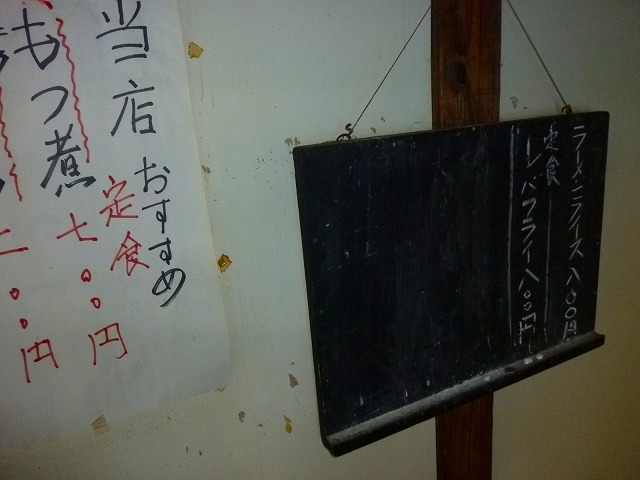 ラーメンライス八〇〇円
定食
レバフライ八〇〇円
当店おすすめ
定食
もつ煮 七〇〇円
二〇〇円